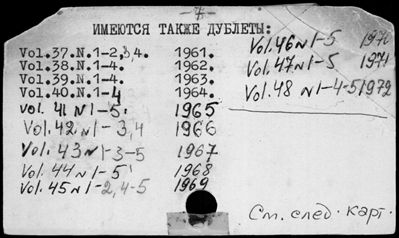 -7-
ИМЕЮТСЯ ТАКЖЕ ДУБЛЕТЫ:
Vol.37.N.1-2,3,4. 1961.
Vol.38.N.1-4. 1962.
Vol.39.N.1-4. 1963.
Vol.40.N.1-4 1964.
Vol. 41 N1-5 1965
Vol. 42 N1-3,4 1966
Vol. 43 N1-3-5 1967
Vol. 44 N1-5 1968
Vol. 45 N1-2,4-5 1969
Vol. 46 N1-5 1970
Vol. 47 N1-5 1971
Vol. 48 N1-4-5 1972
См. след. карт.